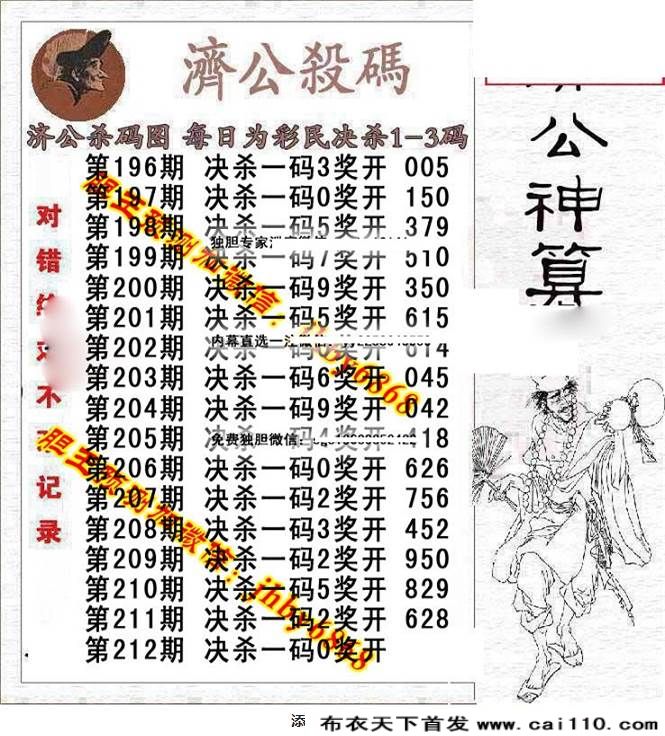 濟公殺碼
济公杀码图 每日为彩民决杀1-3码
第196期 决杀一码3奖开 005
第197期 决杀一码0奖开 150
第198期 决杀一码5奖开 379
独胆专家
第199期 决杀一码7奖开 510
第200期 决杀一码9奖开 350
第201期 决杀一码5奖开 615
内幕直选一注
第202期 决杀一码 奖开 614
第203期 决杀一码6奖开 045
第204期 决杀一码9奖开 042
第205期 决杀一码4奖开 418
免费独胆微信:
第206期 决杀一码0奖开 626
第207期 决杀一码2奖开 756
第208期 决杀一码3奖开 452
第209期 决杀一码2奖开 950
第210期 决杀一码5奖开 829
第211期 决杀一码2奖开 628
第212期 决杀一码0奖开
对错 不 记录
胆王预测加微信: jhby6868
胆王预测加微信: jhby6868
公神算
添 布衣天下首发 www.cai110.com